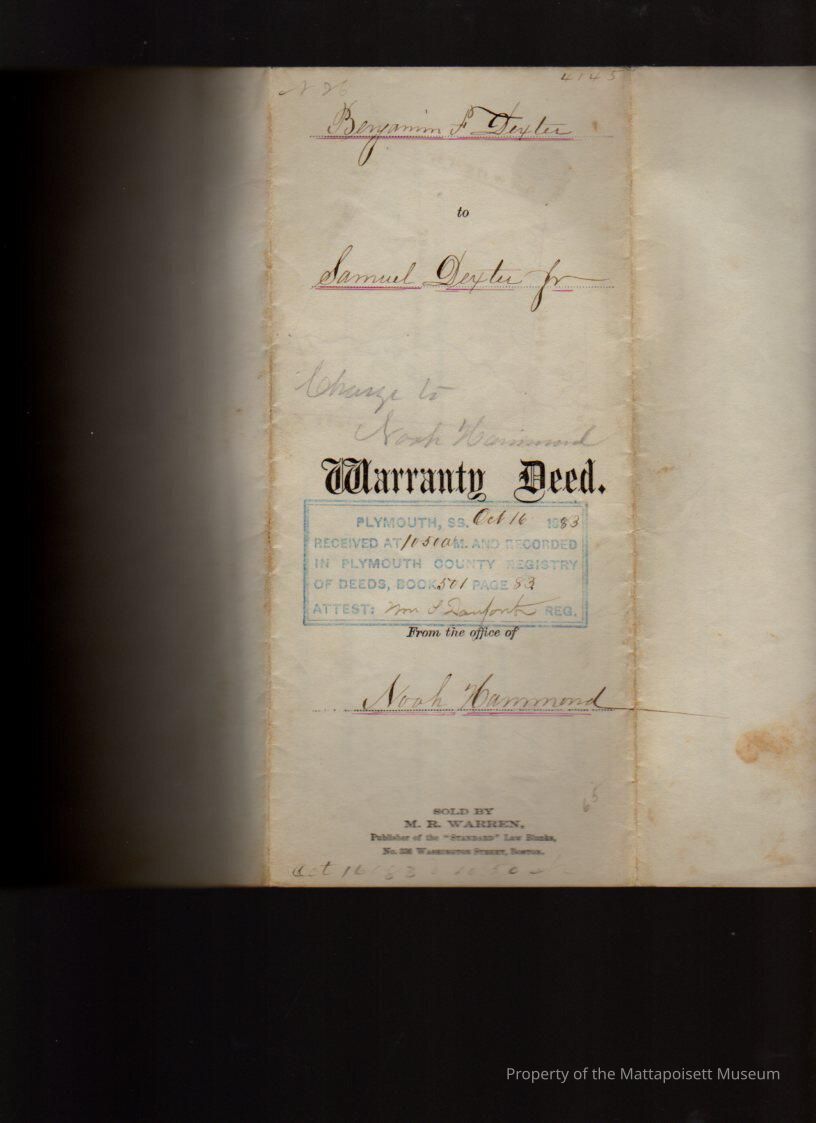 4145
Benjamin F Dexter
to
Samuel Dexter Jr
Charge to
Noah Hammond
Warranty Deed.
PLYMOUTH, SS. Oct 16 1883
RECEIVED AT 10 50 A M. AND RECORDED
IN PLYMOUTH COUNTY REGISTRY
OF DEEDS, BOOK 501 PAGE 83
ATTEST: Wm S Danforth REG.
From the office of
Noah Hammond
65
SOLD BY
M. R. WARREN,
Publisher of the "STANDARD" Law Blanks,
No. 336 WASHINGTON STREET, BOSTON.
Oct 16 83 10 50
Property of the Mattapoisett Museum